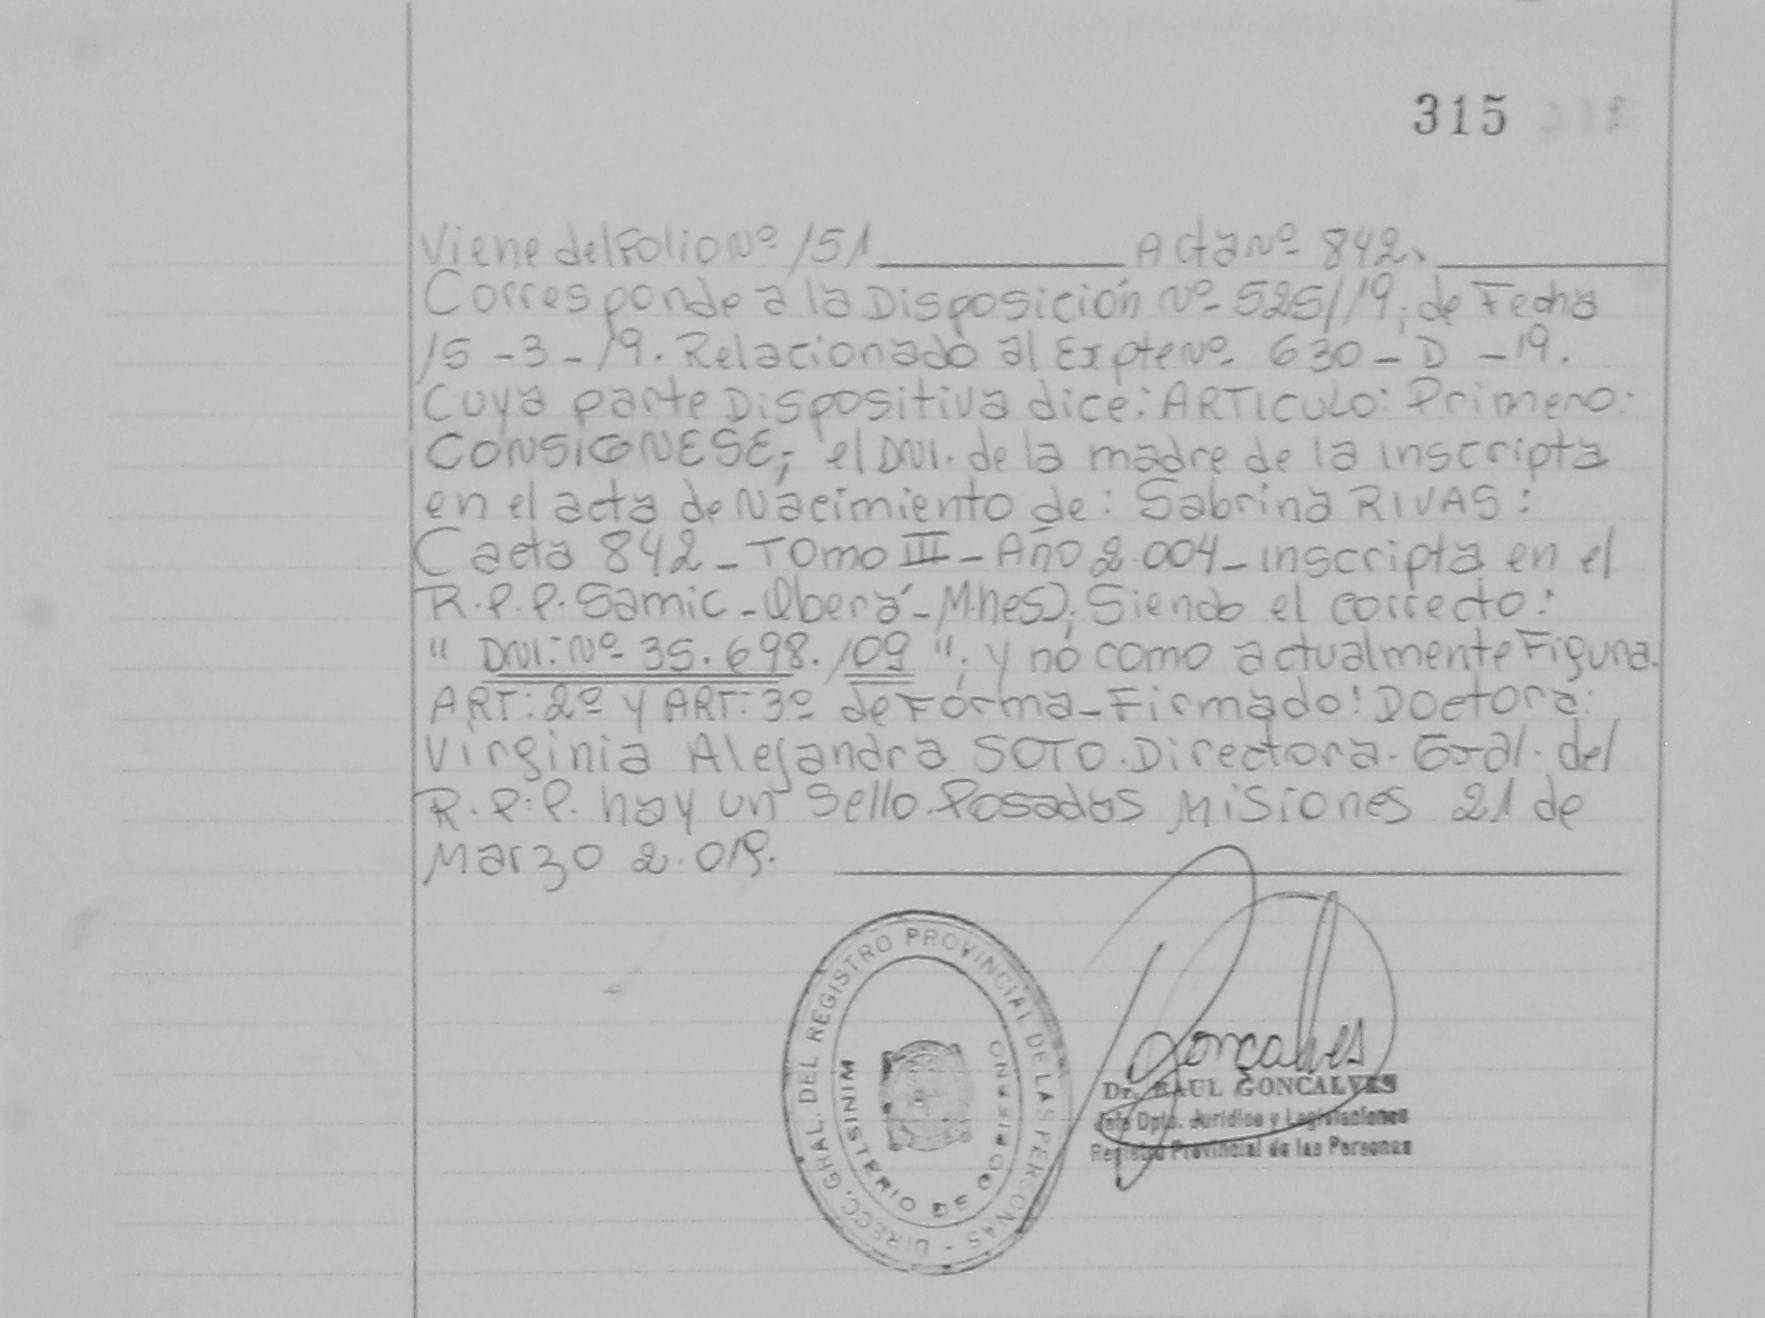 315
Viene del Folio Nº 151 Acta Nº 842.
Corresponde a la Disposición Nº 525/19, de Fecha
15-3-19. Relacionado al Expte Nº 630-D-19.
Cuya parte Dispositiva dice: ARTICULO: Primero:
CONSIGNESE; el DNI. de la madre de la inscripta
en el acta de Nacimiento de: Sabrina RIVAS:
(acta 842-Tomo III-Año 2.004-inscripta en el
R.P.P. Samic-Oberá-Mnes); Siendo el correcto:
" DNI: Nº 35.698.109 "; y nó como actualmente Figura.
ART: 2º y ART: 3º de Forma-Firmado: Doctora:
Virginia Alejandra SOTO. Directora. Gral. del
R.P.P. hay un Sello. Posadas Misiones 21 de
Marzo 2.019.
DIRECC. GRAL. DEL REGISTRO PROVINCIAL DE LAS PERSONAS -
MINISTERIO DE GOBIERNO
Gonçalves
Dr. RAUL GONCALVES
Jefe Dpto. Jurídico y Legislaciones
Registro Provincial de las Personas